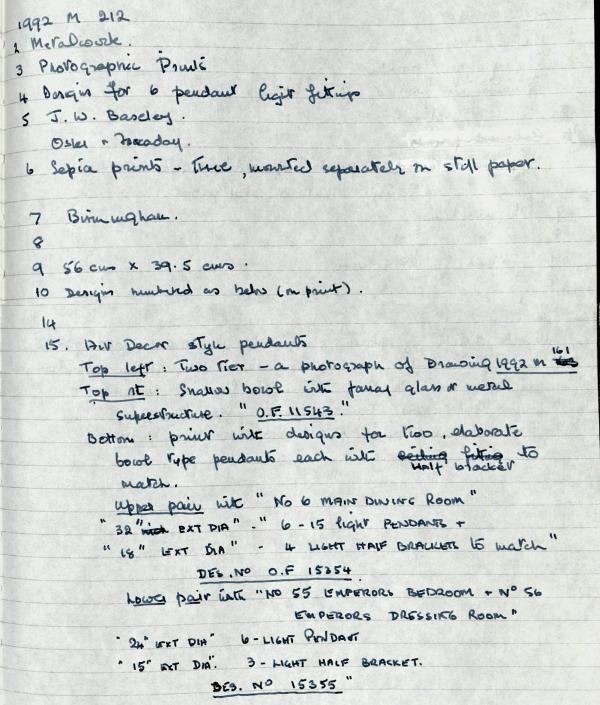 1992 M 212
2 Metalwork.
3 Photographic Prints
4 Designs for 6 pendant light fittings
5 J. W. Baseley.
Osler & Faraday.
6 Sepia prints - three, mounted separately on stiff paper.
7 Birmingham.
8
9 56 cms x 39.5 cms.
10 Designs numbered as below (on print).
14
15. Art Decor style pendants
Top left : Two Tier - a photograph of Drawing 1992 M 161
Top rt : Smaller bowl with fancy glass or metal
superstructure. "O.F. 11543."
Bottom : print with designs for two, elaborate
bowl type pendants each with ceiling fitting to
half bracket
match.
Upper pair with "No 6 MAIN DINING ROOM"
"32" EXT DIA" - "6 - 15 light PENDANTS +
"18" EXT DIA" - 4 LIGHT HALF BRACKETS to match"
DES. NO O.F 15354
Lower pair with "NO 55 EMPERORS BEDROOM + NO 56
EMPERORS DRESSING ROOM"
"24" EXT DIA" 6 - LIGHT PENDANT
"15" EXT DIA". 3 - LIGHT HALF BRACKET.
DES. NO 15355"